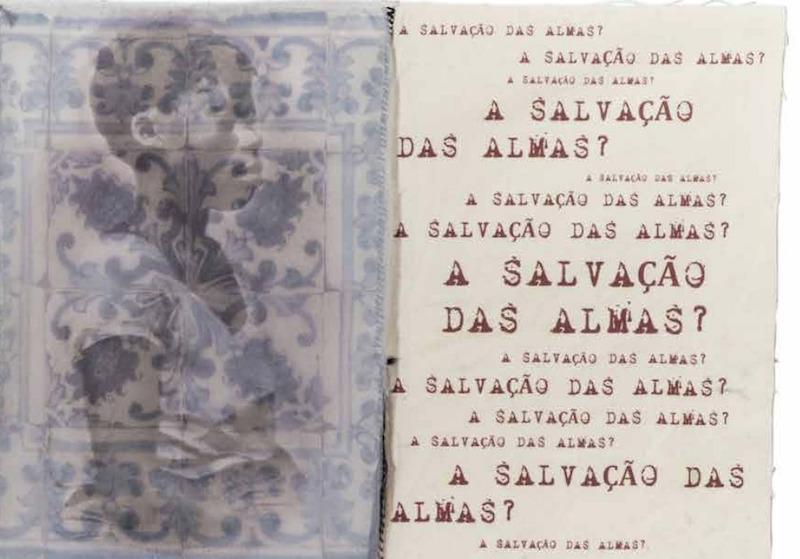 A SALVAÇÃO DAS ALMAS?
A SALVAÇÃO DAS ALMAS?
A SALVAÇÃO DAS ALMAS?
A SALVAÇÃO
DAS ALMAS?
A SALVAÇÃO DAS ALMAS?
A SALVAÇÃO DAS ALMAS?
A SALVAÇÃO DAS ALMAS?
A SALVAÇÃO
DAS ALMAS?
A SALVAÇÃO DAS ALMAS?
A SALVAÇÃO DAS ALMAS?
A SALVAÇÃO DAS ALMAS?
A SALVAÇÃO DAS ALMAS?
A SALVAÇÃO DAS
ALMAS?
A SALVAÇÃO DAS ALMAS?